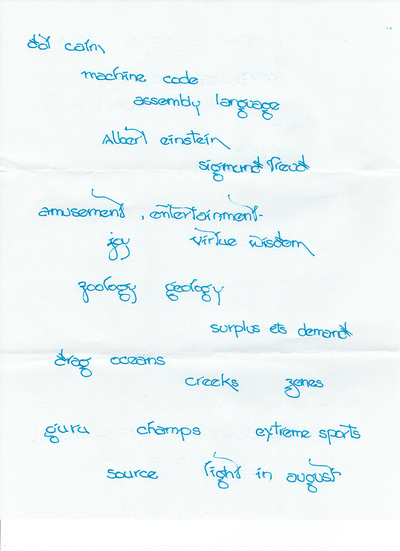 calm
machine code
assembly language
Albert einstein
sigmund freud
amusement, entertainment.
joy virtue wisdom
zoology geology
surplus ets demand
drag oceans
creeks zenes
guru champs extreme sports
source light in august